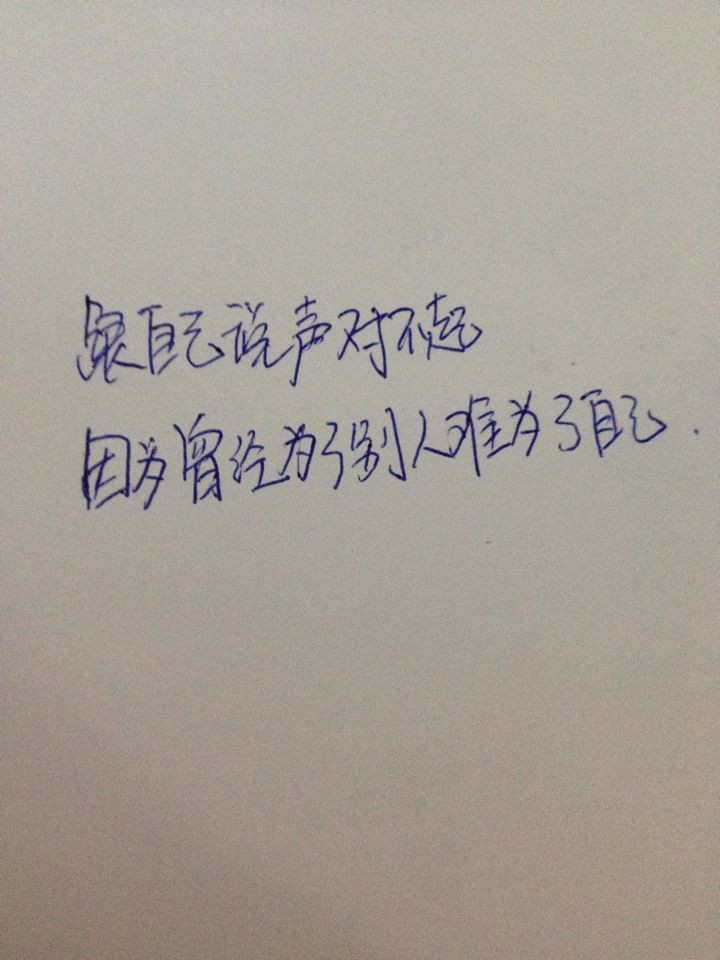 跟自己说声对不起
因为曾经为了别人难为了自己.